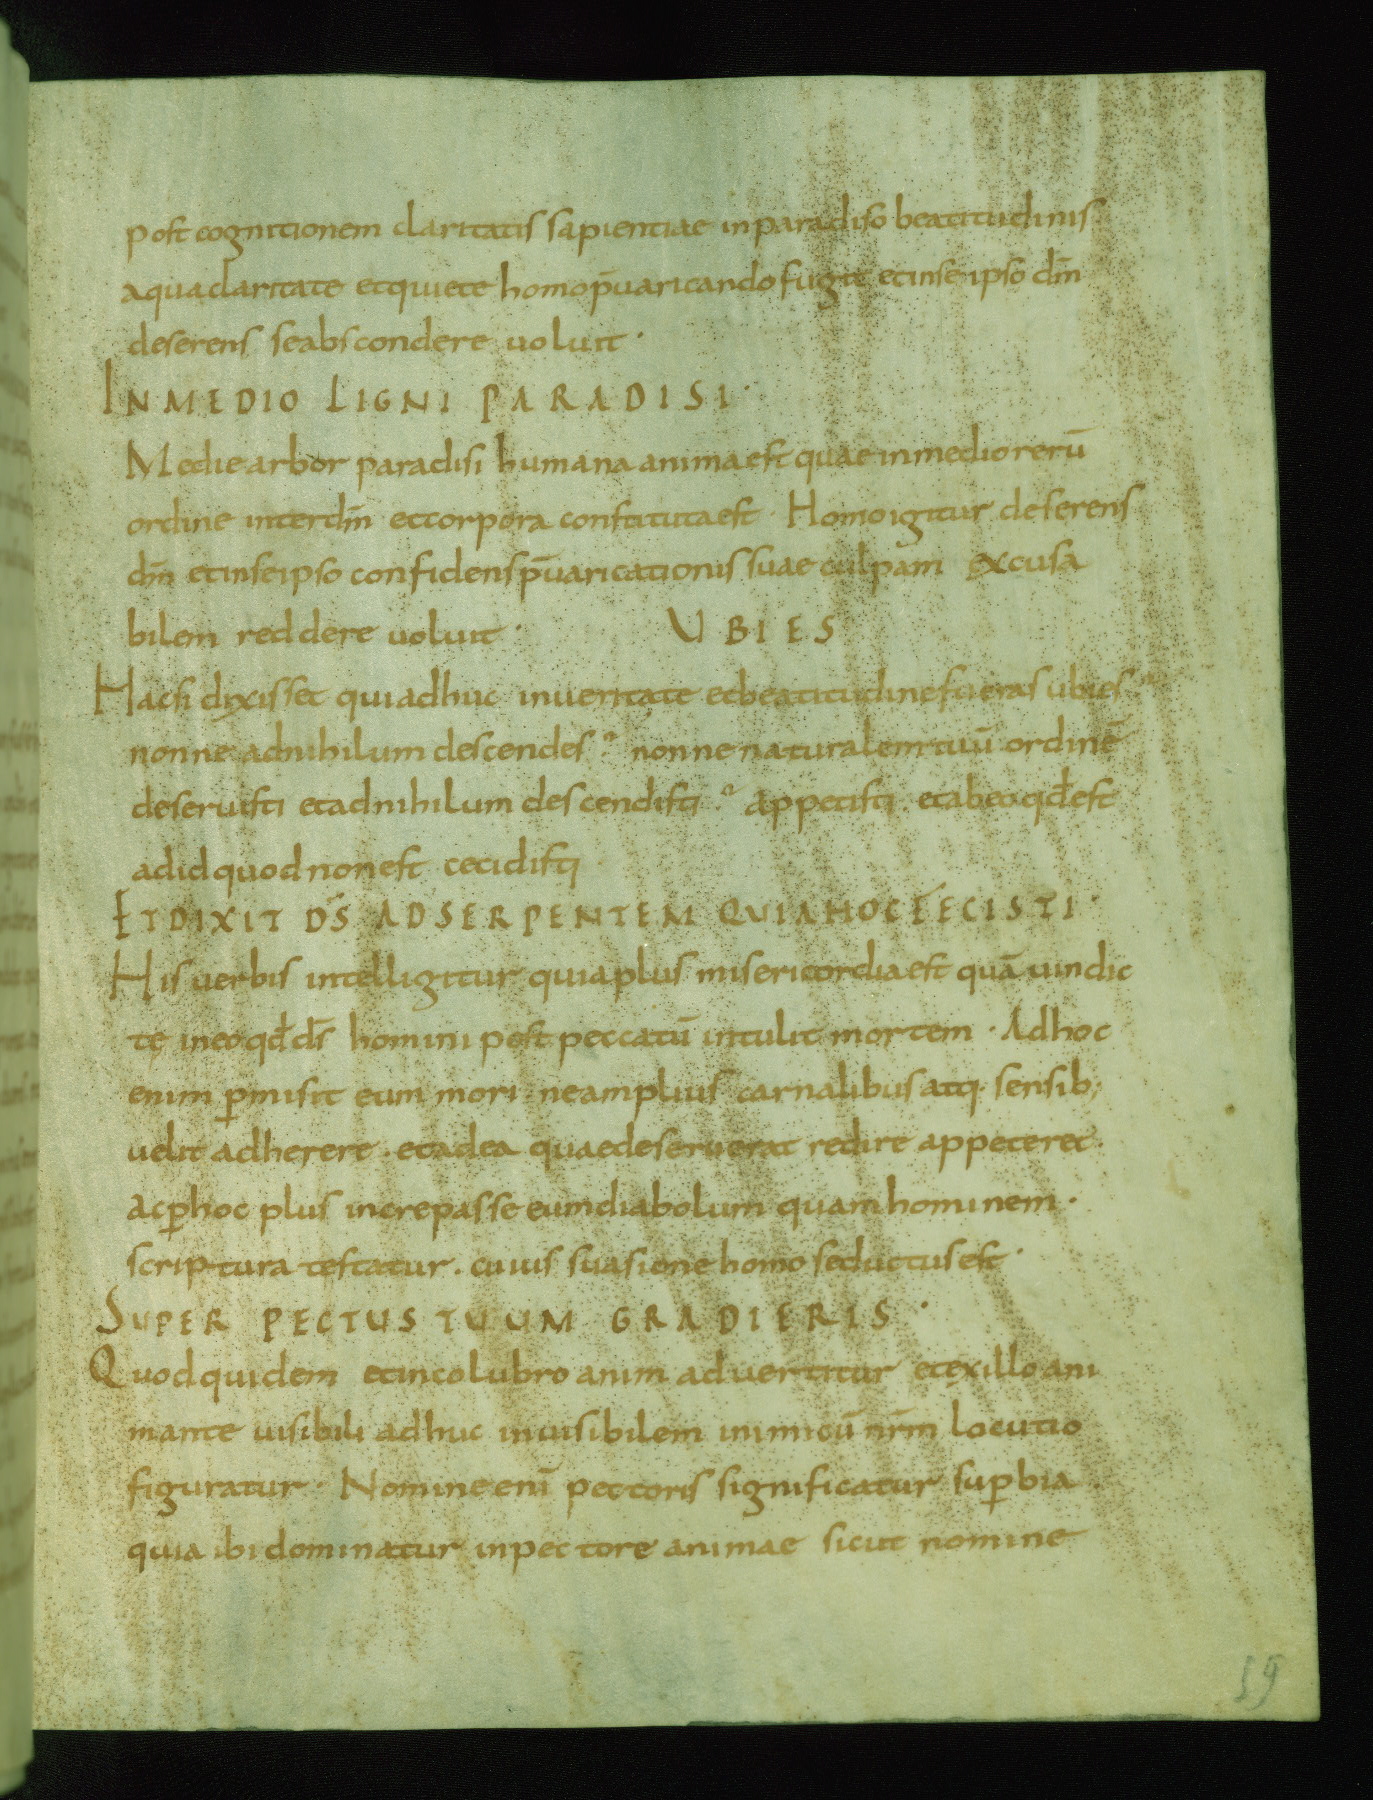 post cognitionem claritatis sapientiae in paradiso beatitudinis
a qua claritate et quiete homo p̄uaricando fugit et in se ipso dm̄
deserens se abscondere uoluit ·
IN MEDIO LIGNI PARADISI ·
Medie arbor paradisi humana anima est quae in medio rerū
ordine inter dm̄ et corpora constituta est · Homo igitur deserens
dm̄ et in se ipso confidens p̄uaricationis suae culpam excusa
bilem reddere uoluit · UBI ES
Hac si dixisset qui adhuc in ueritate et beatitudine fueras ubi es ?
nonne ad nihilum descendes ? nonne naturalem tuū ordinē
deseruisti et ad nihilum descendisti ? appetisti et ab eo qd̄ est
ad id quod non est cecidisti
ET DIXIT DS̄ AD SERPENTEM QUIA HOC FECISTI ·
His uerbis intelligitur quia plus misericordia est quā uindic
te in eo qd̄ ds̄ homini post peccatū intulit mortem · Ad hoc
enim p̱misit eum mori · ne amplius carnalibus atq· sensib;
uelit adherere · et ad ea quae deseruerat redire appeteret ·
ac p̱hoc plus increpasse eum diabolum quam hominem ·
scriptura testatur · cuius suasione homo seductus est ·
SUPER PECTUS TUUM GRADIERIS ·
Quod quidem et in colubro animaduertitur et ex illo ani
mante uisibili adhuc inuisibilem inimicū nr̄m locutio
figuratur · Nomine enī pectoris significatur sup̱bia
quia ibi dominatur in pectore animae sicut nomine
59